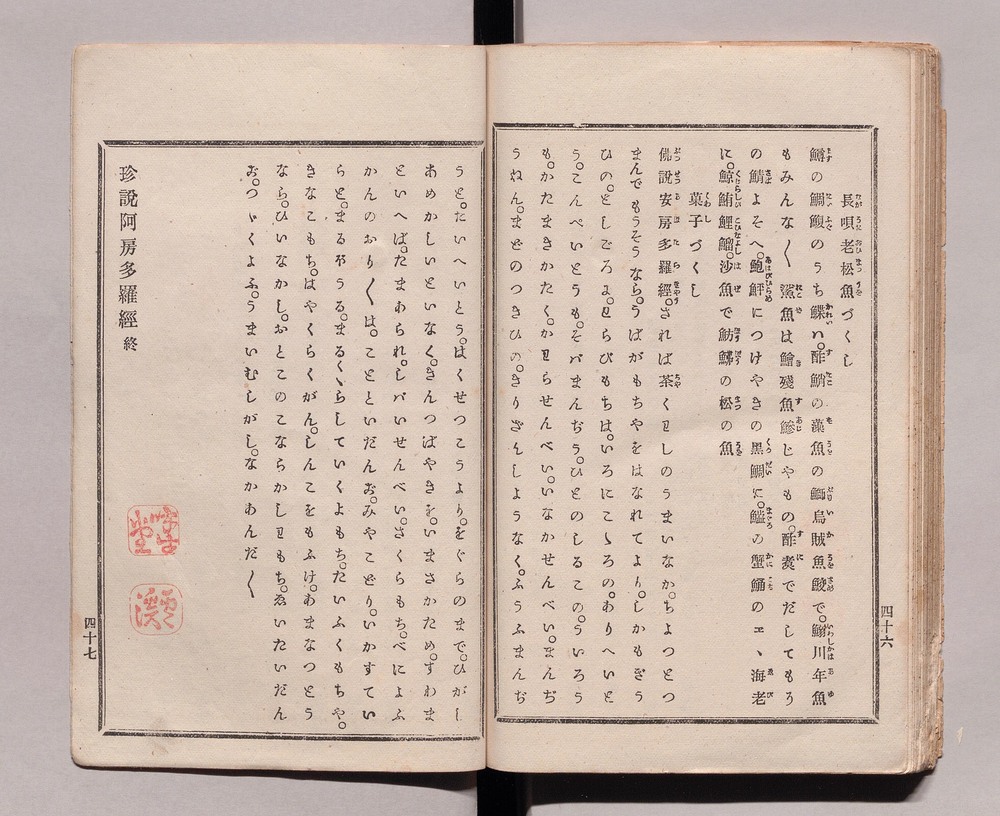 長唄老松魚づくし
鱒の鯛鰒のうち鰈ハ。酢鮹の藻魚の鰤烏賊魚鮫で。鰯川年魚
もみんな〱鯊魚は鱠殘魚鰺じやもの。酢煮でだしてもろ
の鯖よそへ。鮑鮃につけやきの黒鯛に。鱸の蟹鯒のヱヽ海老
に。鯨鮪鯉鰡。沙魚で魴鯡の松の魚
菓子づくし
佛說安房多羅經。されば茶くわしのうまいなか。ちよつとつ
まんでもうそうなら。うばがもちやをはなれてより。しかもぎう
ひの。としごろよ。わらびもちは。いろにこゝろの。ありへいと
う。こんぺいとうも。そバまんぢう。ひとのしるこの。ういろう
も。かたまきかたく。かわらせんべい。いなかせんべい。まんぢ
うねん。まどのつきひの。きりざんしようなく。ふうふまんぢ
うと。たいへいとう。はくせつこうより。をぐらのまで。ひがし
あめかしいといなく。きんつばやきを。いまさかため。すわま
といへば。たまわられ。しバいせんべい。さくらもち。べによふ
かんのおり〱は。ことといだんお。みやこどり。いかすてい
らと。まるやうる。まるくゝらしていくよもち。たいふくもちや。
きなこもち。はやくらくがん。しんこをもふけ。あまなつとう
なら。ひいなかし。おとこのこならかしわもち。ゑいたいだん
お。つゞくよふ。うまいむしがし。なかあんだ〱
珍說阿房多羅經終
四十六
四十七